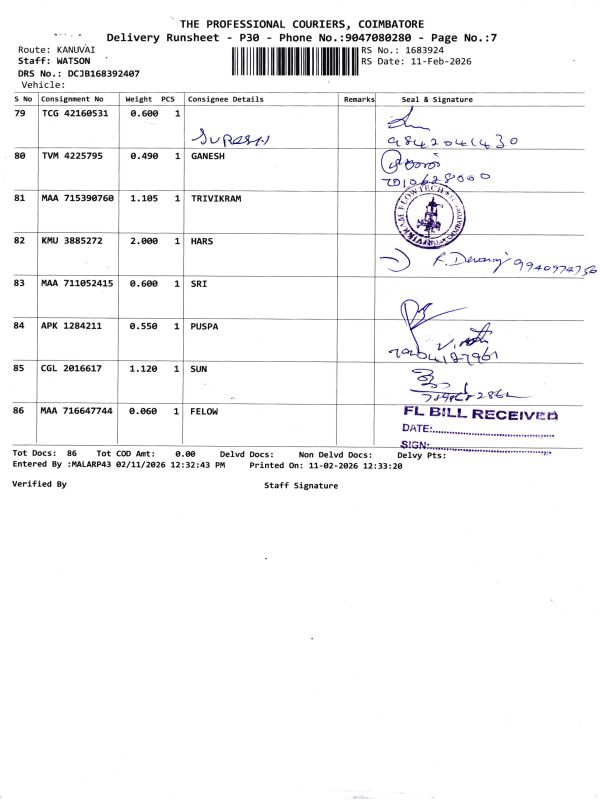 THE PROFESSIONAL COURIERS, COIMBATORE
Delivery Runsheet - P30 - Phone No.:9047080280 - Page No.:7
Route: KANUVAI RS No.: 1683924
Staff: WATSON RS Date: 11-Feb-2026
DRS No.: DCJB168392407
Vehicle:
S No Consignment No Weight PCS Consignee Details Remarks Seal & Signature
79 TCG 42160531 0.600 1
SURESH 9842041430
80 TVM 4225795 0.490 1 GANESH
7010628000
81 MAA 715390760 1.105 1 TRIVIKRAM
82 KMU 3885272 2.000 1 HARS
R. Devaraj 9940974756
83 MAA 711052415 0.600 1 SRI
84 APK 1284211 0.550 1 PUSPA
85 CGL 2016617 1.120 1 SUN
86 MAA 716647744 0.060 1 FELOW FL BILL RECEIVED
DATE:
SIGN:
Tot Docs: 86 Tot COD Amt: 0.00 Delvd Docs: Non Delvd Docs: Delvy Pts:
Entered By :MALARP43 02/11/2026 12:32:43 PM Printed On: 11-02-2026 12:33:20
Verified By Staff Signature